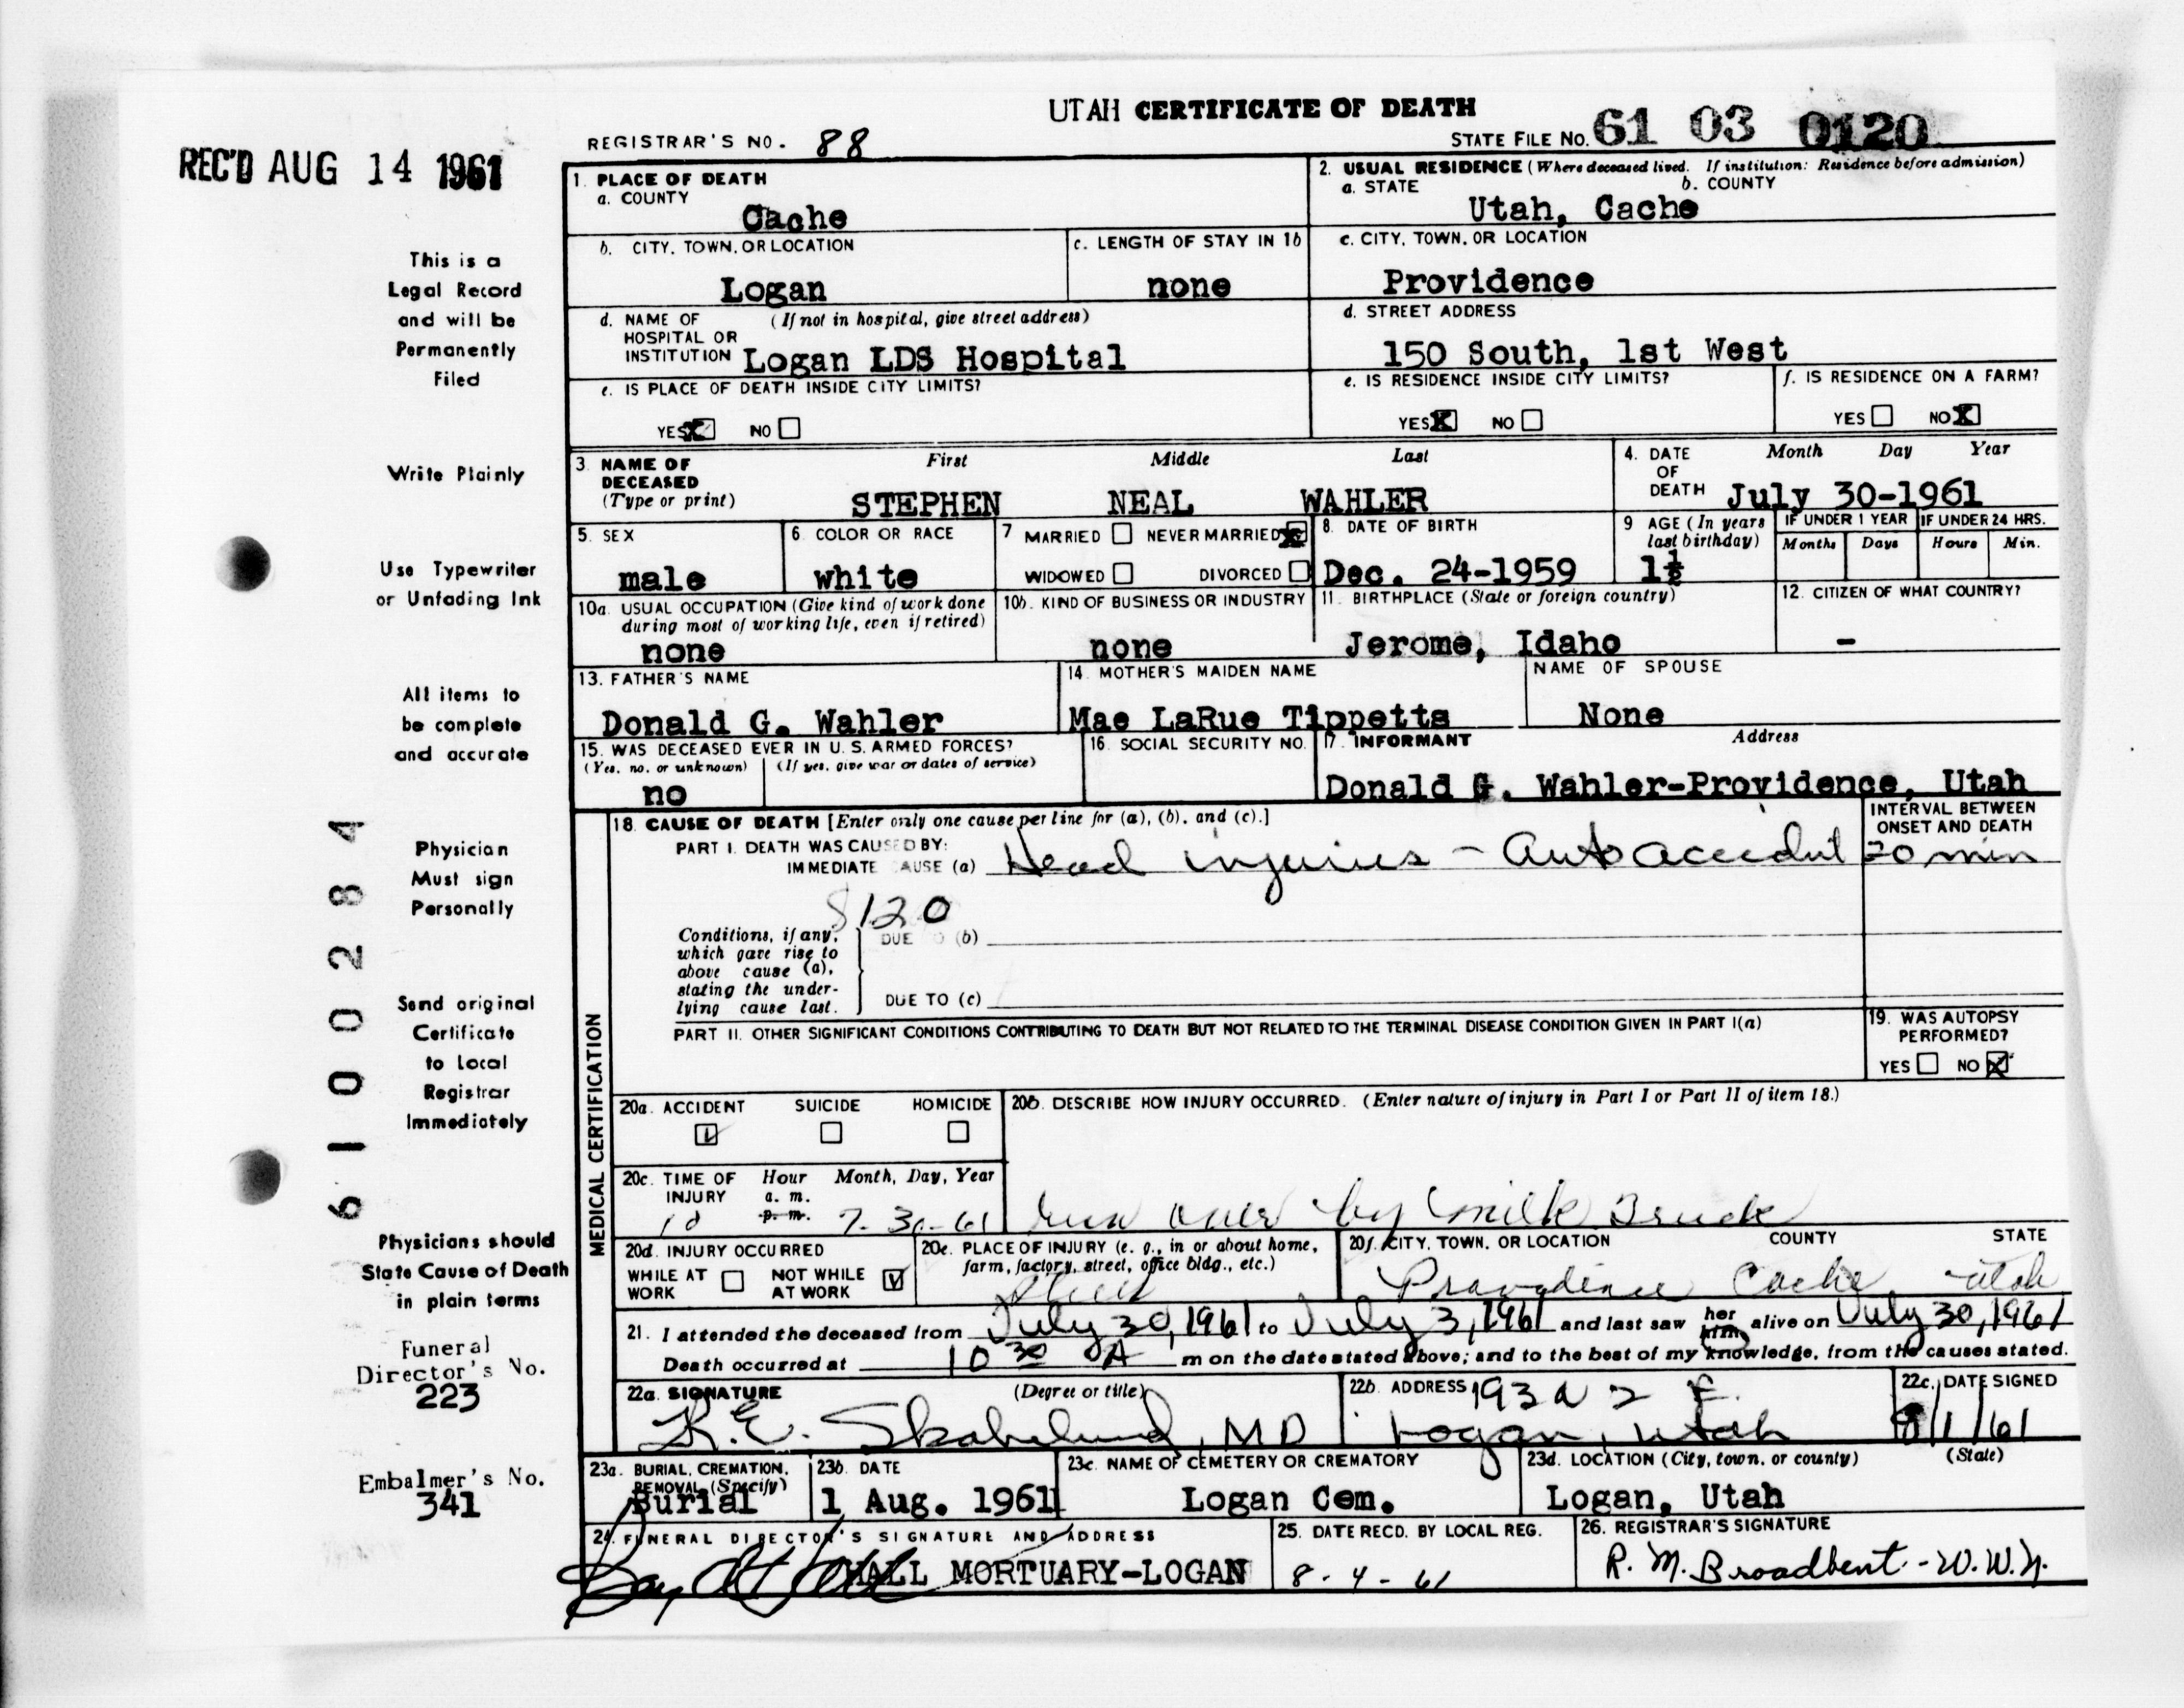 UTAH CERTIFICATE OF DEATH
REGISTRAR'S NO. 88
STATE FILE NO. 61 03 0120
REC'D AUG 14 1961
This is a
Legal Record
and will be
Permanently
Filed
Write Plainly
Use Typewriter
or Unfading Ink
All items to
be complete
and accurate
Physician
Must sign
Personally
Send original
Certificate
to Local
Registrar
Immediately
Physicians should
State Cause of Death
in plain terms
Funeral
Director's No.
223
Embalmer's No.
341
6100284
1. PLACE OF DEATH
a. COUNTY
Cache
2. USUAL RESIDENCE (Where deceased lived. If institution: Residence before admission)
a. STATE b. COUNTY
Utah, Cache
b. CITY, TOWN, OR LOCATION
Logan
c. LENGTH OF STAY IN 1b
none
c. CITY, TOWN, OR LOCATION
Providence
d. NAME OF (If not in hospital, give street address)
HOSPITAL OR
INSTITUTION Logan LDS Hospital
d. STREET ADDRESS
150 South, 1st West
e. IS PLACE OF DEATH INSIDE CITY LIMITS?
YES X NO
e. IS RESIDENCE INSIDE CITY LIMITS?
YES X NO
f. IS RESIDENCE ON A FARM?
YES NO X
3. NAME OF
DECEASED
(Type or print)
First Middle Last
STEPHEN NEAL WAHLER
4. DATE
OF
DEATH
Month Day Year
July 30-1961
5. SEX
male
6. COLOR OR RACE
white
7 MARRIED NEVER MARRIED X
WIDOWED DIVORCED
8. DATE OF BIRTH
Dec. 24-1959
9 AGE (In years
last birthday)
1½
IF UNDER 1 YEAR IF UNDER 24 HRS.
Months Days Hours Min.
10a. USUAL OCCUPATION (Give kind of work done
during most of working life, even if retired)
none
10b. KIND OF BUSINESS OR INDUSTRY
none
11. BIRTHPLACE (State or foreign country)
Jerome, Idaho
12. CITIZEN OF WHAT COUNTRY?
-
13. FATHER'S NAME
Donald G. Wahler
14. MOTHER'S MAIDEN NAME
Mae LaRue Tippetts
NAME OF SPOUSE
None
15. WAS DECEASED EVER IN U. S. ARMED FORCES?
(Yes, no, or unknown) (If yes, give war or dates of service)
no
16. SOCIAL SECURITY NO.
17. INFORMANT Address
Donald G. Wahler-Providence, Utah
MEDICAL CERTIFICATION
18. CAUSE OF DEATH [Enter only one cause per line for (a), (b), and (c).]
PART I. DEATH WAS CAUSED BY:
IMMEDIATE CAUSE (a) Head injuries - Auto accident
INTERVAL BETWEEN
ONSET AND DEATH
20 min
8120
Conditions, if any,
which gave rise to
above cause (a),
stating the under-
lying cause last.
DUE TO (b)
DUE TO (c)
PART II. OTHER SIGNIFICANT CONDITIONS CONTRIBUTING TO DEATH BUT NOT RELATED TO THE TERMINAL DISEASE CONDITION GIVEN IN PART I(a)
19. WAS AUTOPSY
PERFORMED?
YES NO X
20a. ACCIDENT SUICIDE HOMICIDE
20b. DESCRIBE HOW INJURY OCCURRED. (Enter nature of injury in Part I or Part II of item 18.)
run over by milk Truck
20c. TIME OF Hour Month, Day, Year
INJURY a. m.
10 p. m. 7-30-61
20d. INJURY OCCURRED
WHILE AT NOT WHILE
WORK AT WORK
20e. PLACE OF INJURY (e. g., in or about home,
farm, factory, street, office bldg., etc.)
Street
20f. CITY, TOWN, OR LOCATION COUNTY STATE
Providence Cache Utah
21. I attended the deceased from July 30, 1961 to July 3, 1961 and last saw her him alive on July 30, 1961
Death occurred at 10 30 A m on the date stated above; and to the best of my knowledge, from the causes stated.
22a. SIGNATURE (Degree or title)
MD
22b. ADDRESS 193 N 2 E.
Logan, Utah
22c. DATE SIGNED
8/1/61
23a. BURIAL, CREMATION,
REMOVAL (Specify)
Burial
23b. DATE
1 Aug. 1961
23c. NAME OF CEMETERY OR CREMATORY
Logan Cem.
23d. LOCATION (City, town, or county) (State)
Logan, Utah
24. FUNERAL DIRECTOR'S SIGNATURE AND ADDRESS
HALL MORTUARY-LOGAN
25. DATE RECD. BY LOCAL REG.
8-4-61
26. REGISTRAR'S SIGNATURE
R. M. Broadbent - W.W.N.